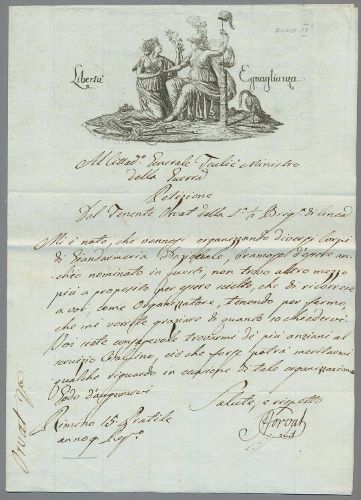 ANNO IX
Libertà Eguaglianza
Al Cittad.º Generale Teulié Ministro
della Guerra
Petizione
Del Tenente Orvat della 1.ª ½ Brig.ª di Linea
Mi è noto, che vannosi organizzando diversi Corpi
di Giandarmeria Nazionale, bramoso d'essere an-
che nominato in questi, non trovo altro mezzo
più a proposito per essere eletto, che di ricorrere
a voi, come Organizzatore, tenendo per fermo,
che mi vorrete graziare di quanto vò chiedervi.
Voi siete consapevole trovarmi de' più anziani al
servizio, ciò che forse potrà meritarmi
qualche riguardo in occasione di tale organizzazione
Godo d'augurarvi
Salute, e rispetto
Rimino 15 Pratile
anno 9 Rep.º
Horvat
Orvat